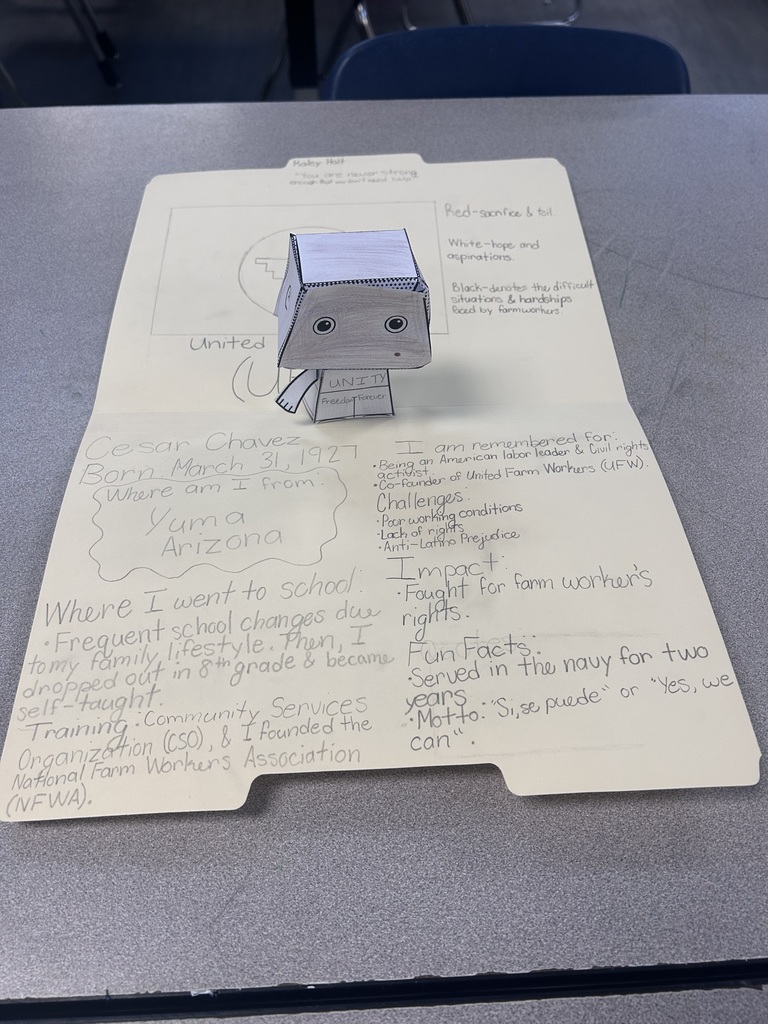 "You are never strong
enough that you don't need help"
Red-sacrifice & toil.
White-hope and
aspirations.
Black-denotes the difficult
situations & hardships
faced by farmworkers.
United
(U
UNITY
Freedom Forever
Cesar Chavez
Born March 31, 1927
Where am I from:
Yuma
Arizona
Where I went to school:
•Frequent school changes due
to my family lifestyle. Then, I
dropped out in 8th grade & became
self-taught.
Training: Community Services
Organization (CSO), & I founded the
National Farm Workers Association
(NFWA).
I am remembered for:
•Being an American labor leader & Civil rights
activist.
•Co-founder of United Farm Workers (UFW).
Challenges:
•Poor working conditions
•Lack of rights
•Anti-Latino Prejudice
Impact:
•Fought for farm worker's
rights.
Fun Facts:
•Served in the navy for two
years
•Motto: "Si, se puede" or "Yes, we
can".